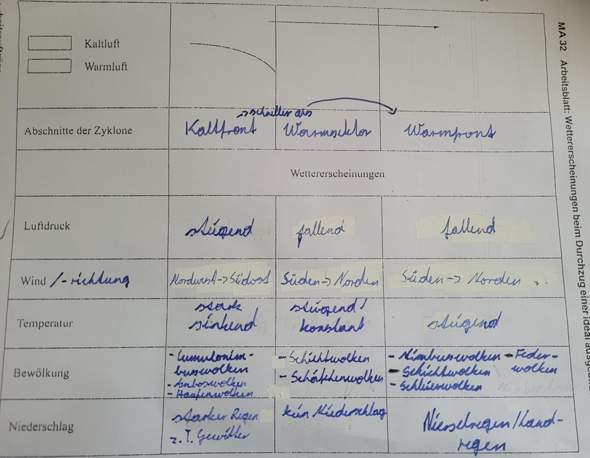 Kaltluft
Warmluft
→ schneller als
Abschnitte der Zyklone Kaltfront Warmsektor Warmfront
Wettererscheinungen
Luftdruck steigend fallend fallend
Wind /-richtung Nordwest → Südost Süden → Norden Süden → Norden
Temperatur stark sinkend steigend/ konstant steigend
Bewölkung
- Cumulonim-
buswolken
- Ambosswolken
- Haufenwolken
- Schichtwolken
- Schäfchenwolken
- Nimbuswolken - Feder-
- Schichtwolken wolken
- Schleierwolken
Niederschlag
starker Regen
z.T. Gewitter
kein Niederschlag
Nieselregen/Land-
regen
MA 32 Arbeitsblatt: Wettererscheinungen beim Durchzug einer ideal